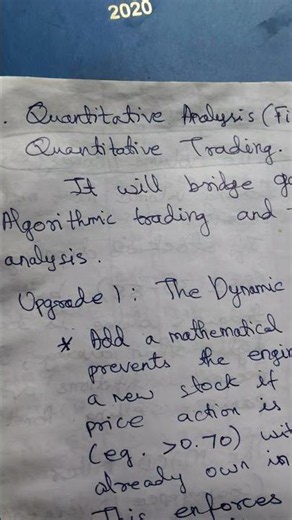 2020
. Quantitative Analysis (Fi
Quantitative Trading.
It will bridge
Algorithmic trading and
analysis.
Upgrade 1: The Dynamic
* Add a mathematical
prevents the engin
a new stock if
price action is
(eg. >0.70) wi
already own in
This enforces